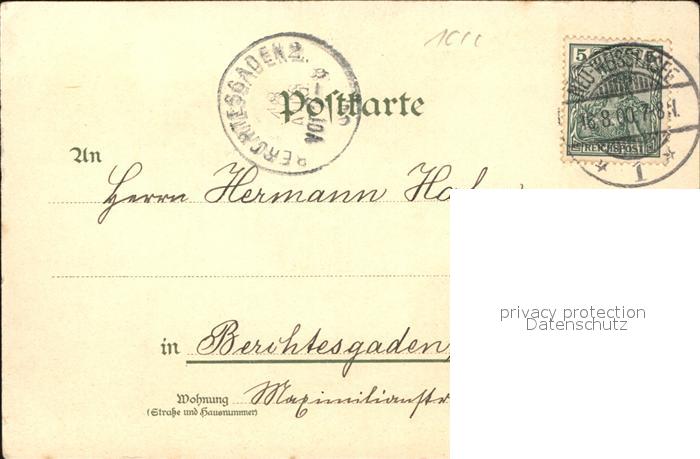 1611
BERCHTESGADEN 2.
5
16.8.00.7-8N.
Postkarte
REICHSPOST
1
An
Herrn Hermann
privacy protection
Datenschutz
in Berchtesgaden,
Wohnung Maximilianstr
(Straße und Hausnummer)